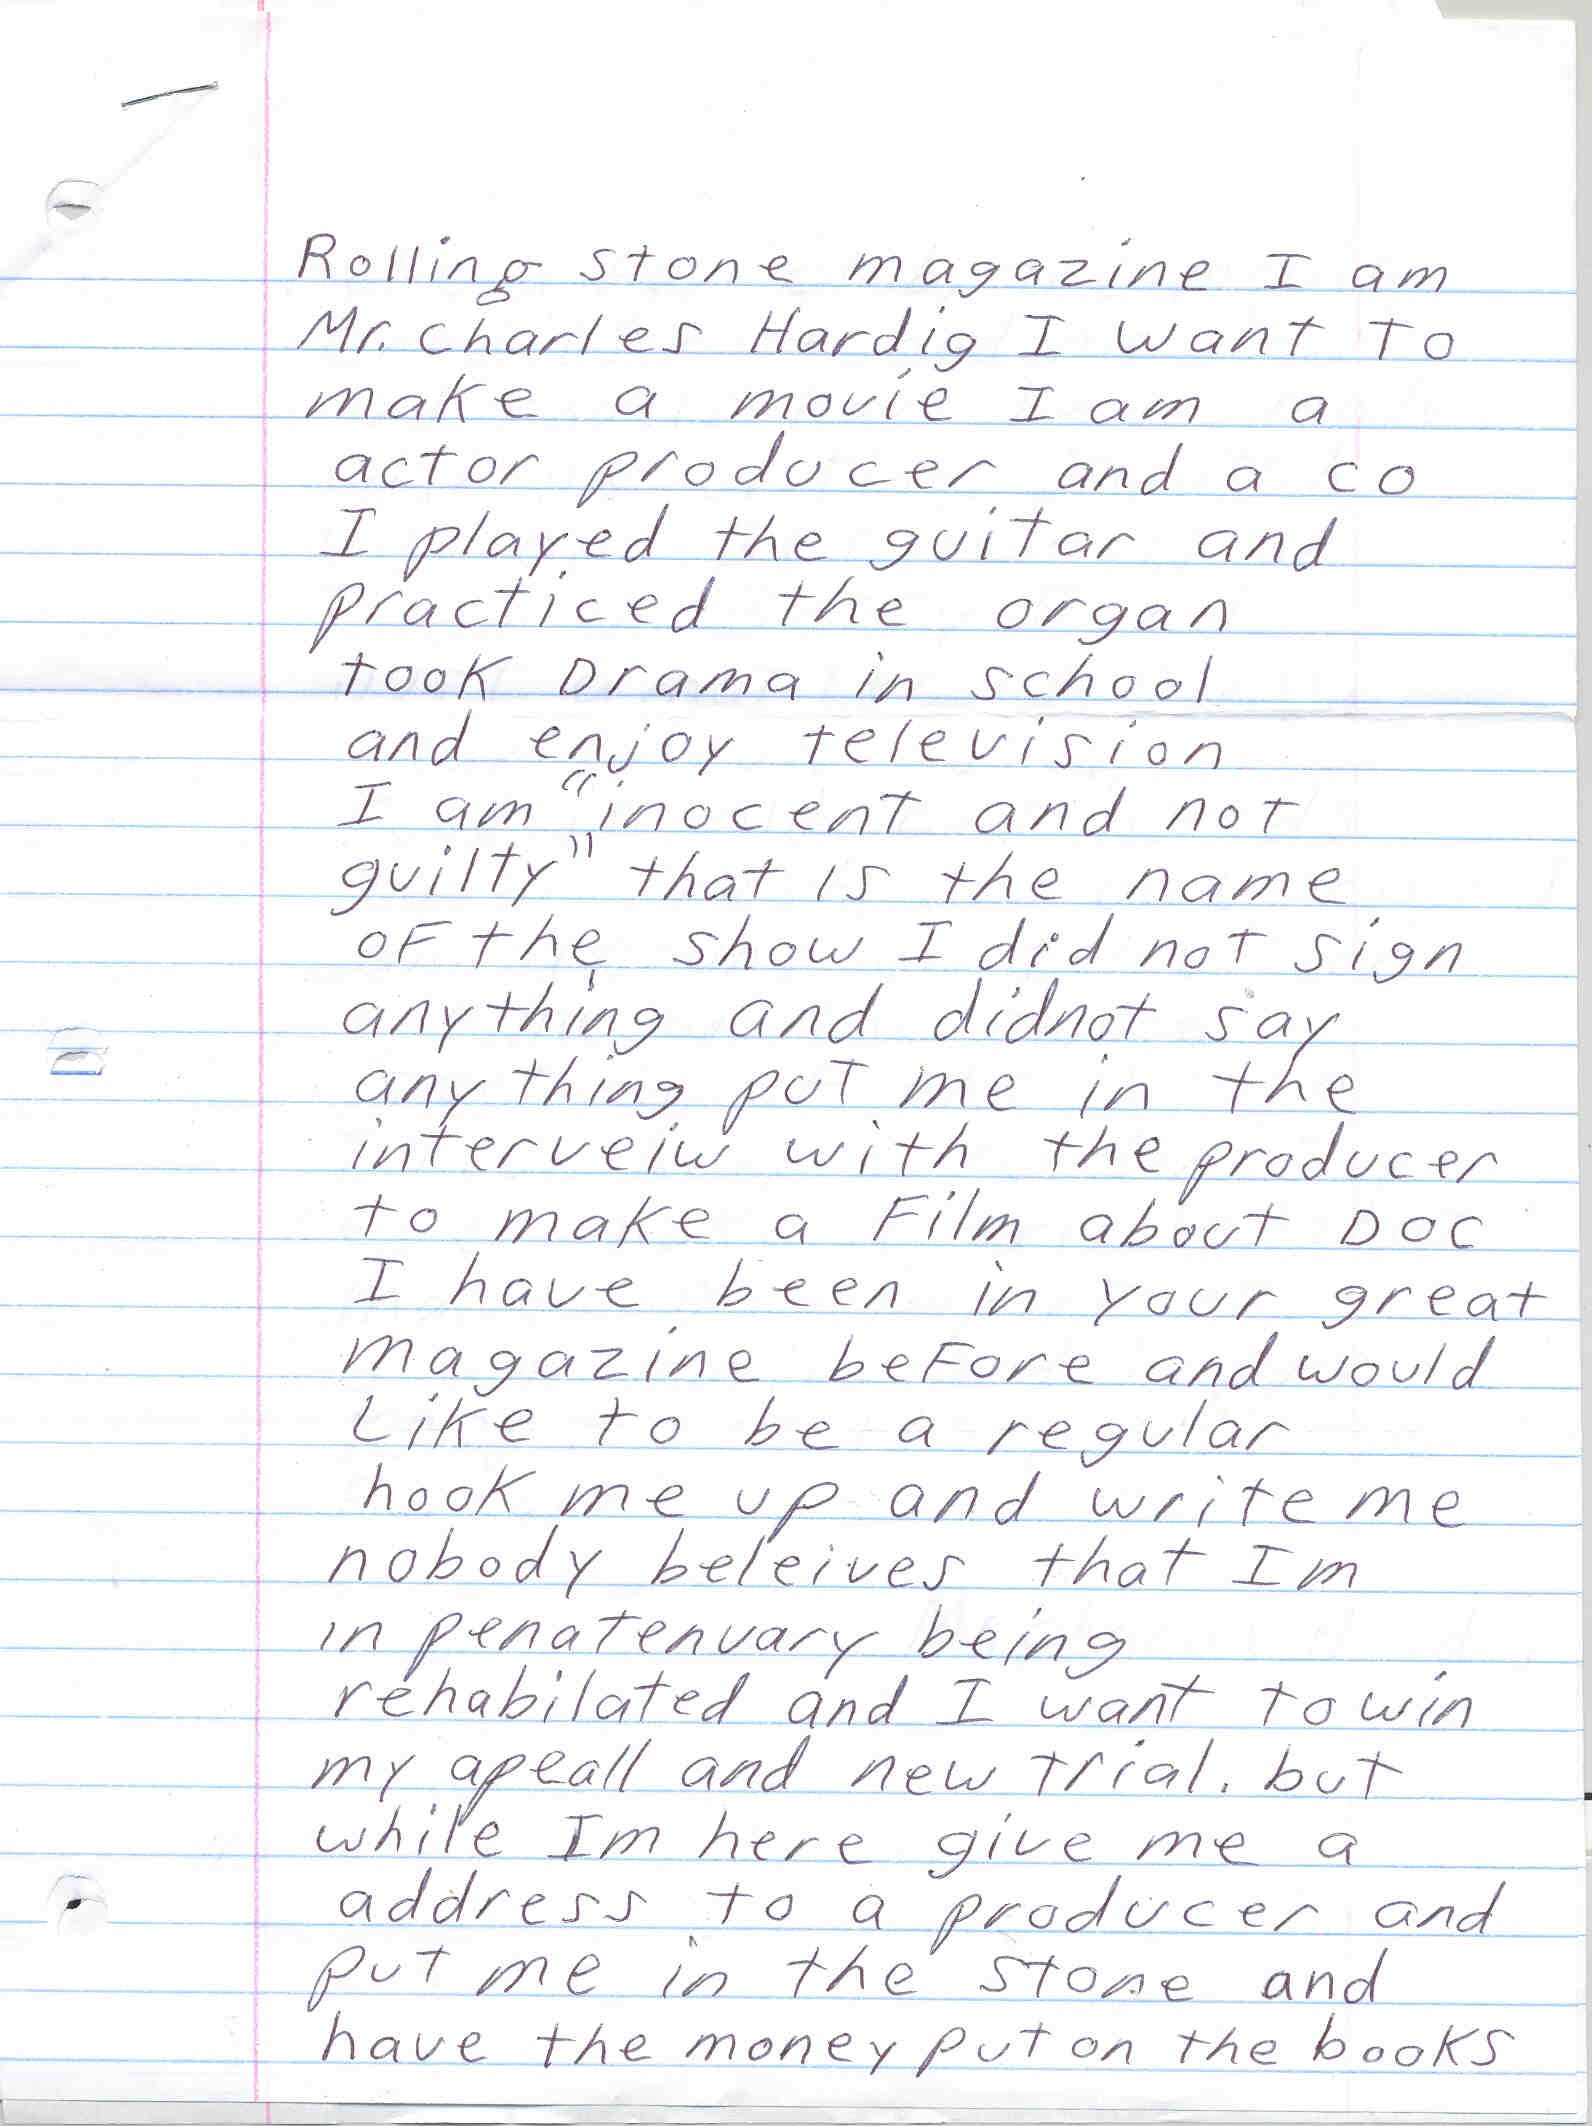 Rolling stone magazine I am
Mr. Charles Hardig I want to
make a movie I am a
actor producer and a co
I played the guitar and
practiced the organ
took Drama in school
and enjoy television
I am "inocent and not
guilty" that is the name
of the show I did not sign
anything and didnot say
any thing put me in the
interveiw with the producer
to make a Film about DOC
I have been in your great
magazine beFore and would
Like to be a regular
hook me up and write me
nobody beleives that Im
in penatenuary being
rehabilated and I want to win
my apeall and new trial. but
while Im here give me a
address to a producer and
put me in the stone and
have the money put on the books